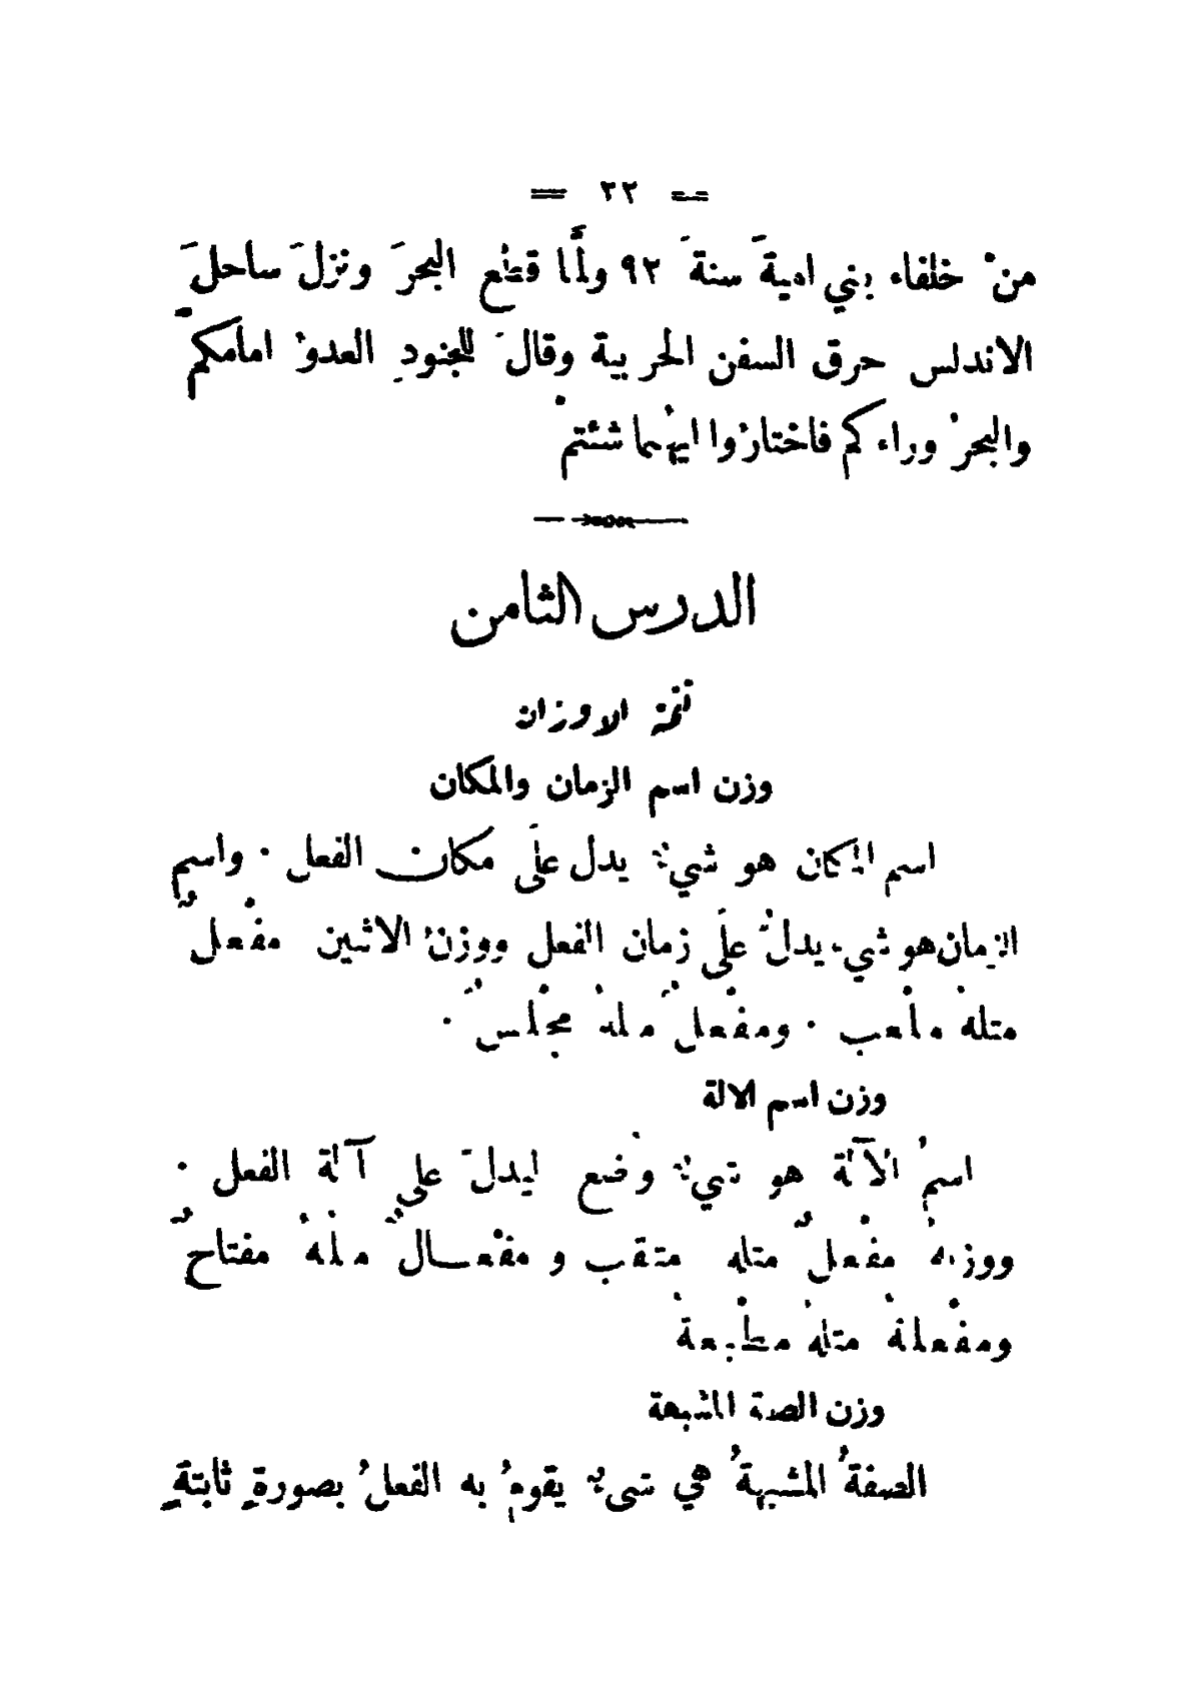 = ٢٢ =
منْ خلفاء بني اميةَ سنةَ ٩٢ ولمَّا قطع البحرَ ونزلَ ساحلَ
الاندلس حرق السفن الحربية وقالَ للجنودِ العدوُ امامكمْ
والبحرُ وراءكم فاختارُوا ايهُما شئتمْ
الدرس الثامن
تتمة الاوزان
وزن اسم الزمان والمكان
اسم المكان هو شيءٌ يدل علَى مكان الفعل ٠ واسم
الزمان هو شيء يدلُّ علَى زمان الفعل ووزنُ الاثنين مفْعلٌ
مثلهُ ملْعب ٠ ومفْعلٌ مثلهُ مجْلسٌ ٠
وزن اسم الالة
اسمُ الآلة هو شيءٌ وُضع ليدلَّ على آلة الفعل ٠
ووزنهُ مفْعلٌ مثله مثقب و مفْعـال مثلهُ مفتاحٌ
ومفْعلةُ مثلهُ مطْبعةُ
وزن الصفة المشبهة
الصفةُ المشبهةُ هي شيءٌ يقومُ به الفعلُ بصورةٍ ثابتةٍ